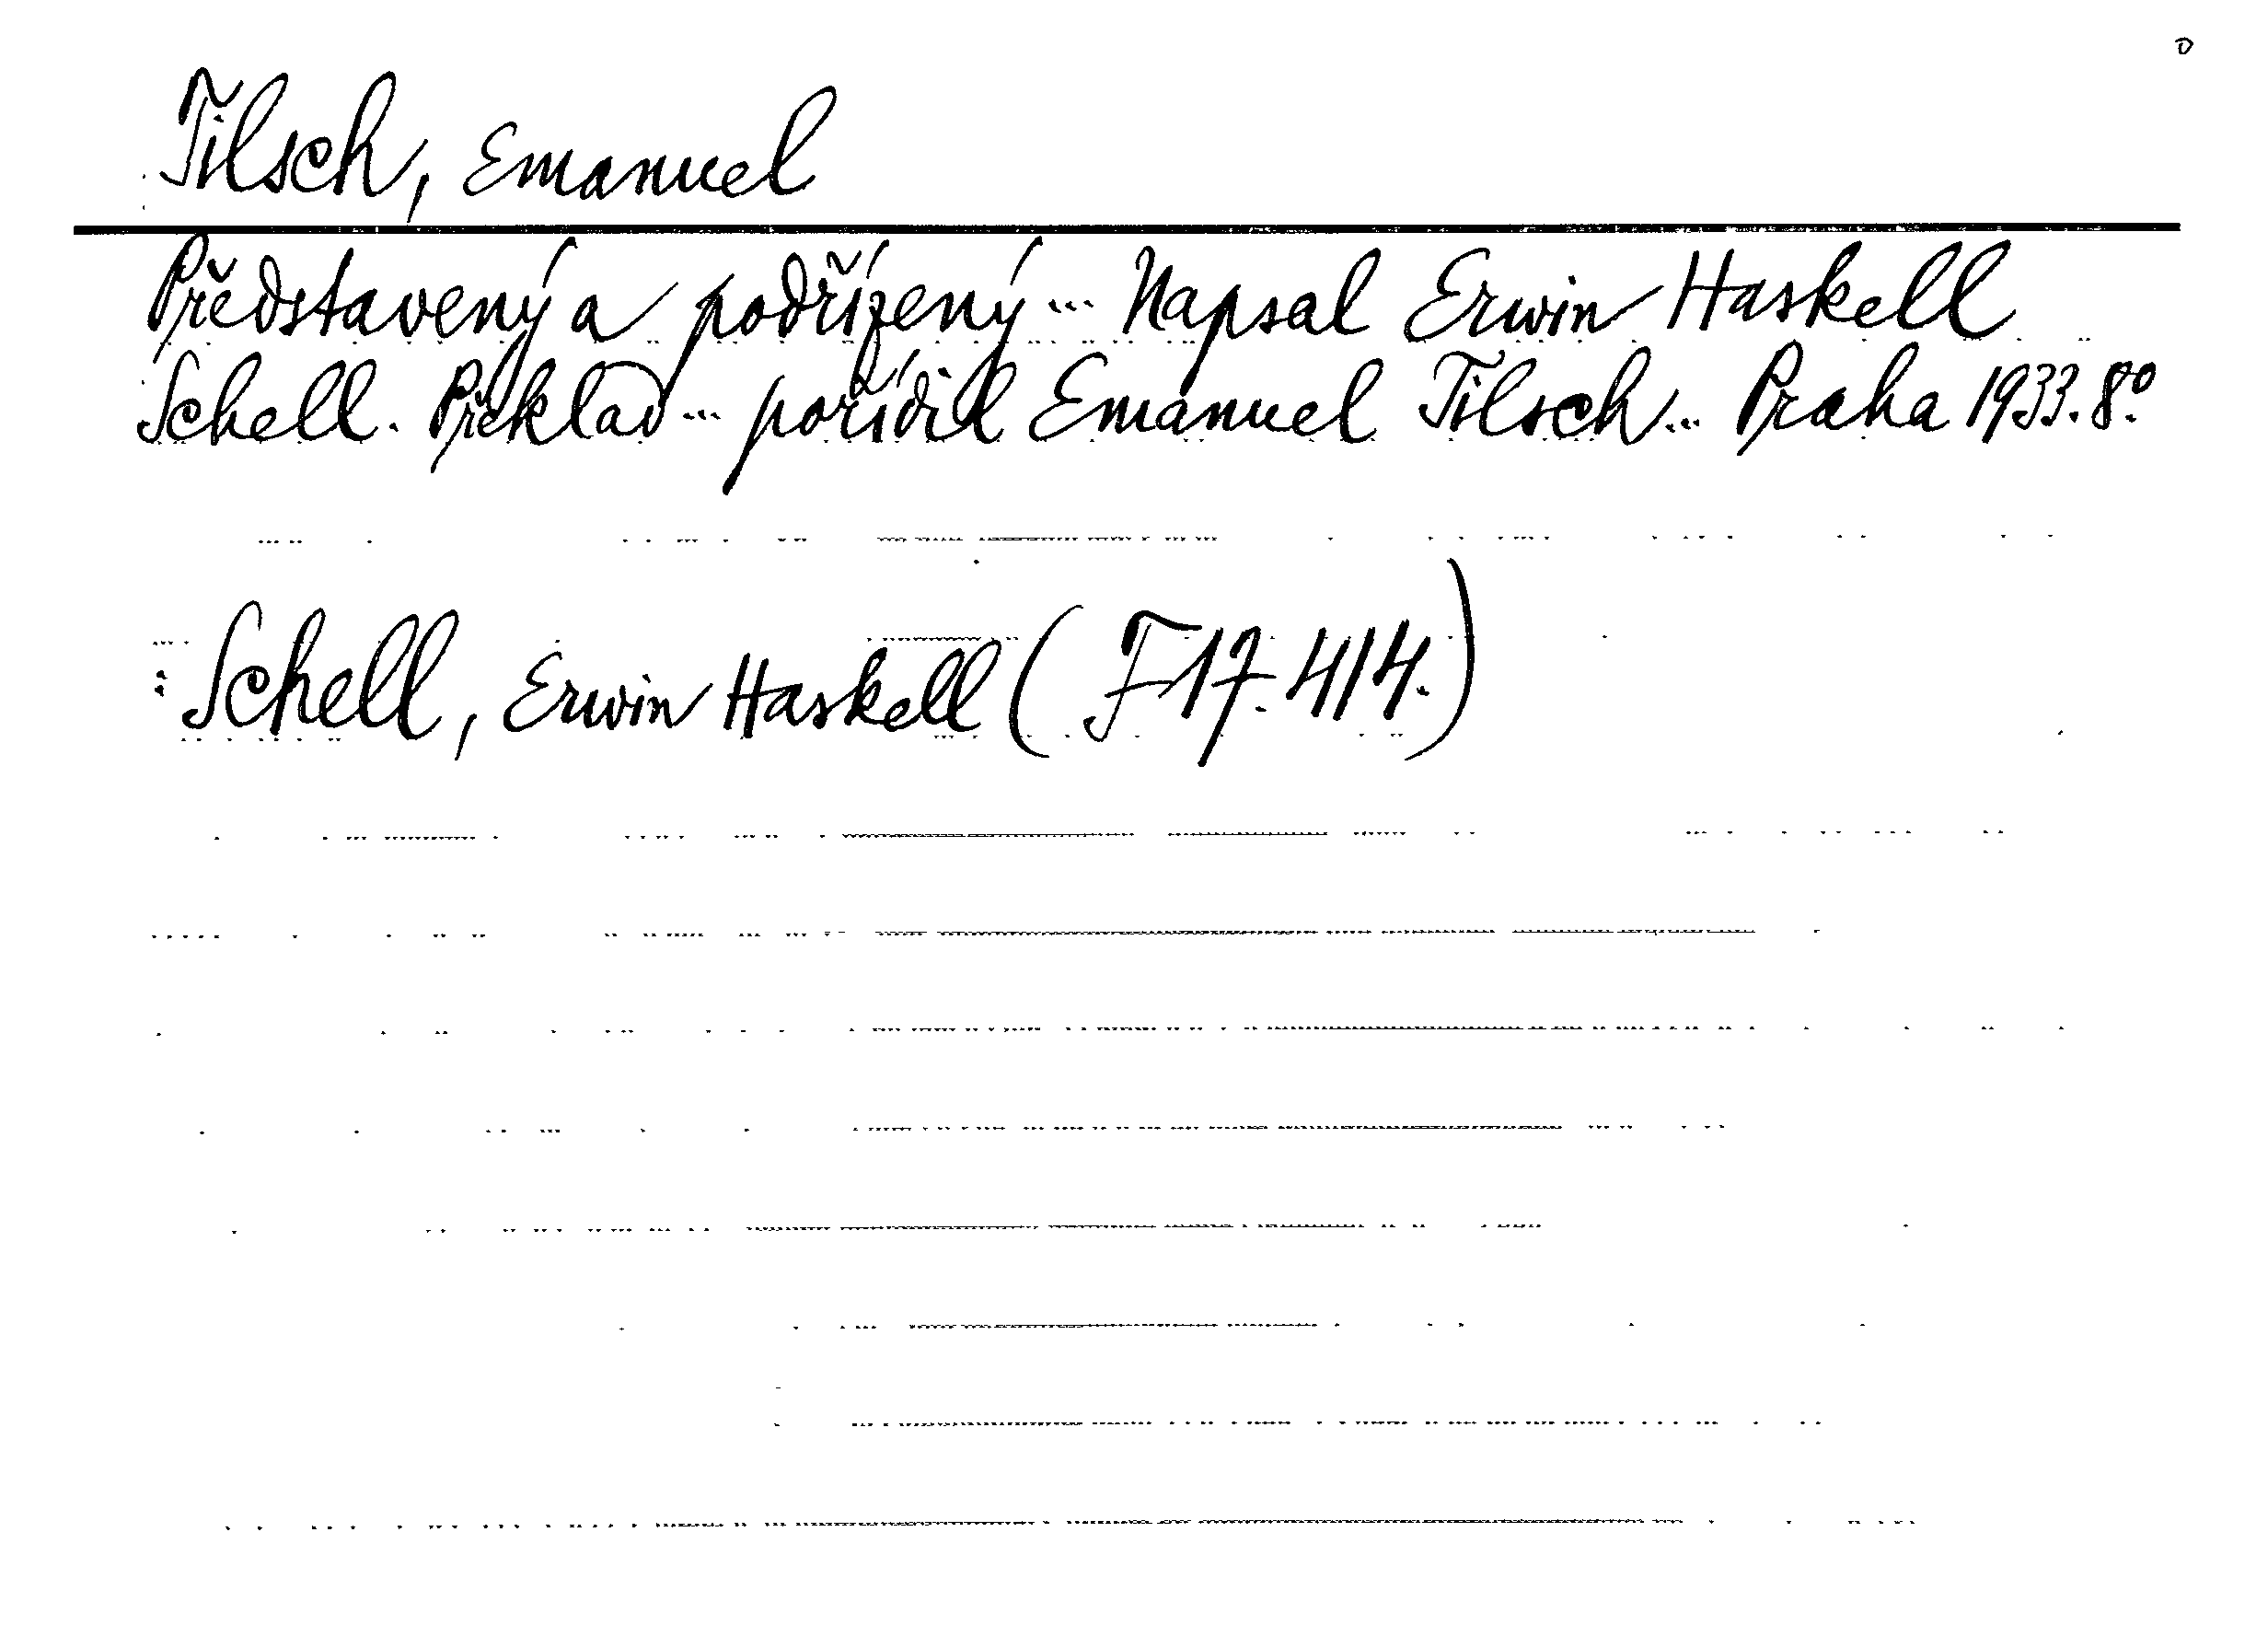 Tilsch, Emanuel
Představený a podřízený ... Napsal Erwin Haskell
Schell. Překlad ... pořídil Emanuel Tilsch ... Praha 1933. 8°.
: Schell, Erwin Haskell (F 17.414.)